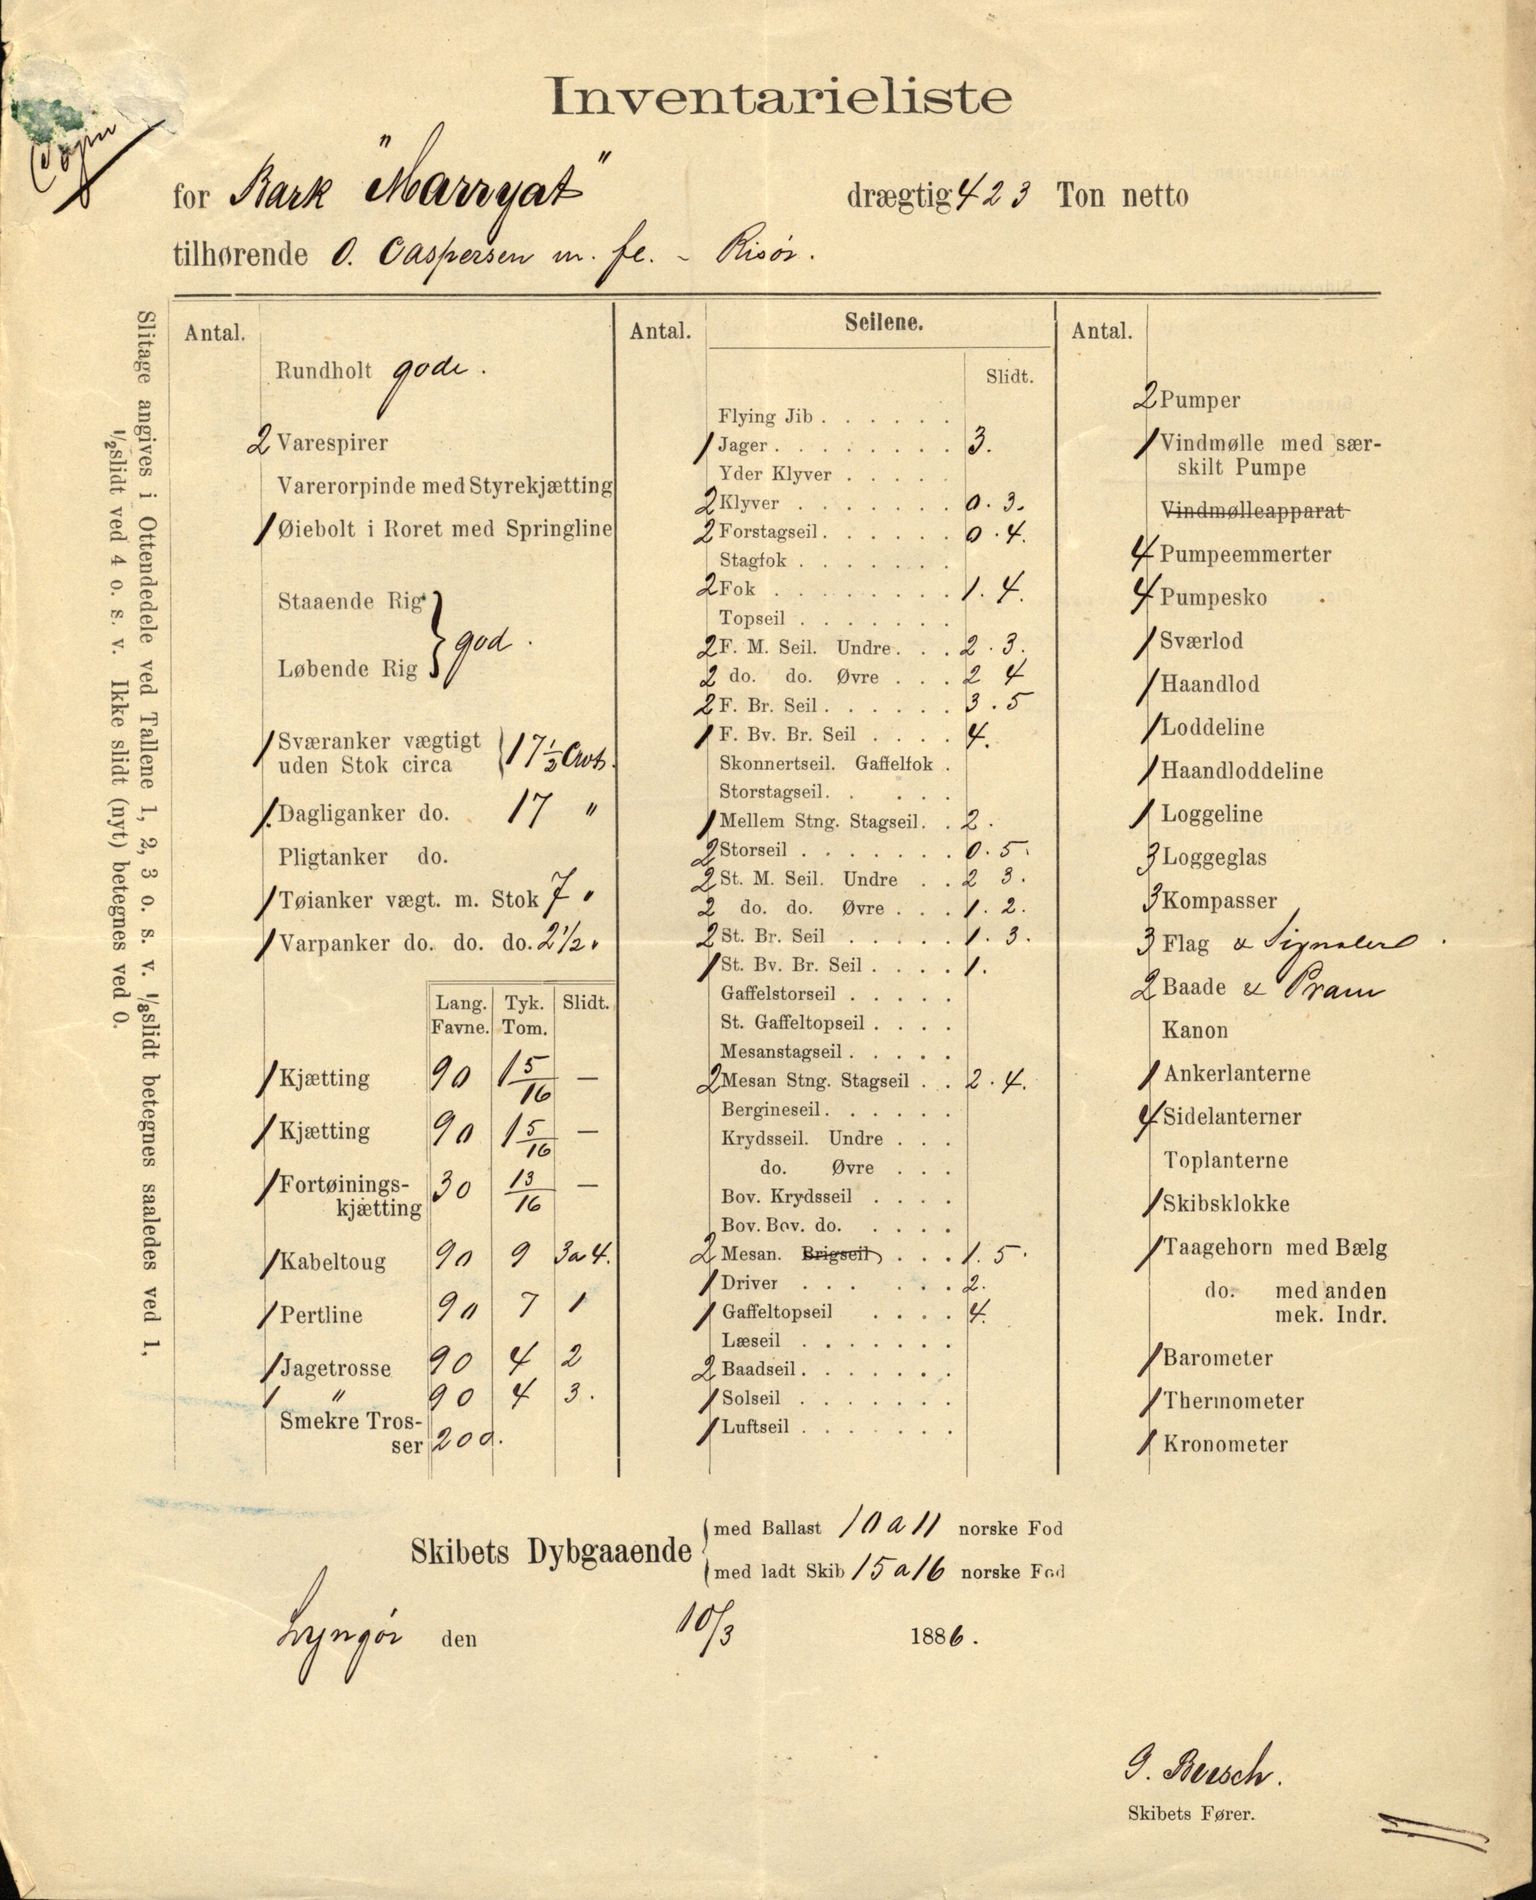 Copi
Inventarieliste
for Bark "Marryat" drægtig 423 Ton netto
tilhørende O. Caspersen m. fl. - Risør.
Slitage angives i Ottendedele ved Tallene 1, 2, 3 o. s. v. 1/8 slidt betegnes saaledes ved 1,
1/2 slidt ved 4 o. s. v. Ikke slidt (nyt) betegnes ved 0.
Antal.
Rundholt gode.
2 Varespirer
Varerorpinde med Styrekjætting
1 Øiebolt i Roret med Springline
Staaende Rig
Løbende Rig } god.
1 Sværanker vægtigt
uden Stok circa 17 1/2 Cwts.
1. Dagliganker do. 17 "
Pligtanker do.
1 Tøianker vægt. m. Stok 7 "
1 Varpanker do. do. do. 2 1/2 "
Lang. Tyk. Slidt.
Favne. Tom.
1 Kjætting 90 1 5/16 —
1 Kjætting 90 1 5/16 —
1 Fortøinings-
kjætting 30 13/16 —
1 Kabeltoug 90 9 3 a 4.
1 Pertline 90 7 1
1 Jagetrosse 90 4 2
1 " 90 4 3.
Smekre Tros-
ser 200.
Antal. Seilene.
Slidt.
Flying Jib
1 Jager 3.
Yder Klyver
2 Klyver 0. 3.
2 Forstagseil 0. 4.
Stagfok
2 Fok 1. 4.
Topseil
2 F. M. Seil. Undre 2. 3.
2 do. do. Øvre 2 4
2 F. Br. Seil 3. 5
1 F. Bv. Br. Seil 4.
Skonnertseil. Gaffelfok
Storstagseil
1 Mellem Stng. Stagseil 2.
2 Storseil 0. 5.
2 St. M. Seil. Undre 2 3.
2 do. do. Øvre 1. 2.
2 St. Br. Seil 1. 3.
1 St. Bv. Br. Seil 1.
Gaffelstorseil
St. Gaffeltopseil
Mesanstagseil
2 Mesan Stng. Stagseil 2. 4.
Bergineseil
Krydsseil. Undre
do. Øvre
Bov. Krydsseil
Bov. Bov. do.
2 Mesan. Brigseil 1. 5.
1 Driver 2.
1 Gaffeltopseil 4.
Læseil
2 Baadseil
1 Solseil
1 Luftseil
Antal.
2 Pumper
1 Vindmølle med sær-
skilt Pumpe
Vindmølleapparat
4 Pumpeemmerter
4 Pumpesko
1 Sværlod
1 Haandlod
1 Loddeline
1 Haandloddeline
1 Loggeline
3 Loggeglas
3 Kompasser
3 Flag & Signaler
2 Baade & Pram
Kanon
1 Ankerlanterne
4 Sidelanterner
Toplanterne
1 Skibsklokke
1 Taagehorn med Bælg
do. med anden
mek. Indr.
1 Barometer
1 Thermometer
1 Kronometer
Skibets Dybgaaende
med Ballast 10 a 11 norske Fod
med ladt Skib 15 a 16 norske Fod
Lyngør den 10/3 1886.
G. Beesch.
Skibets Fører.